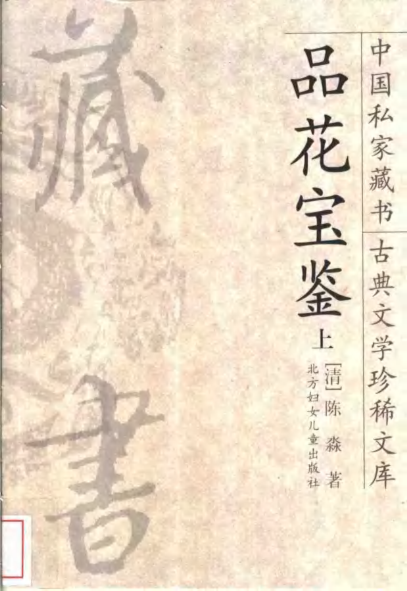 中国私家藏书
古典文学珍稀文库
品花宝鉴
上
[清]陈淼 著
北方妇女儿童出版社
藏書